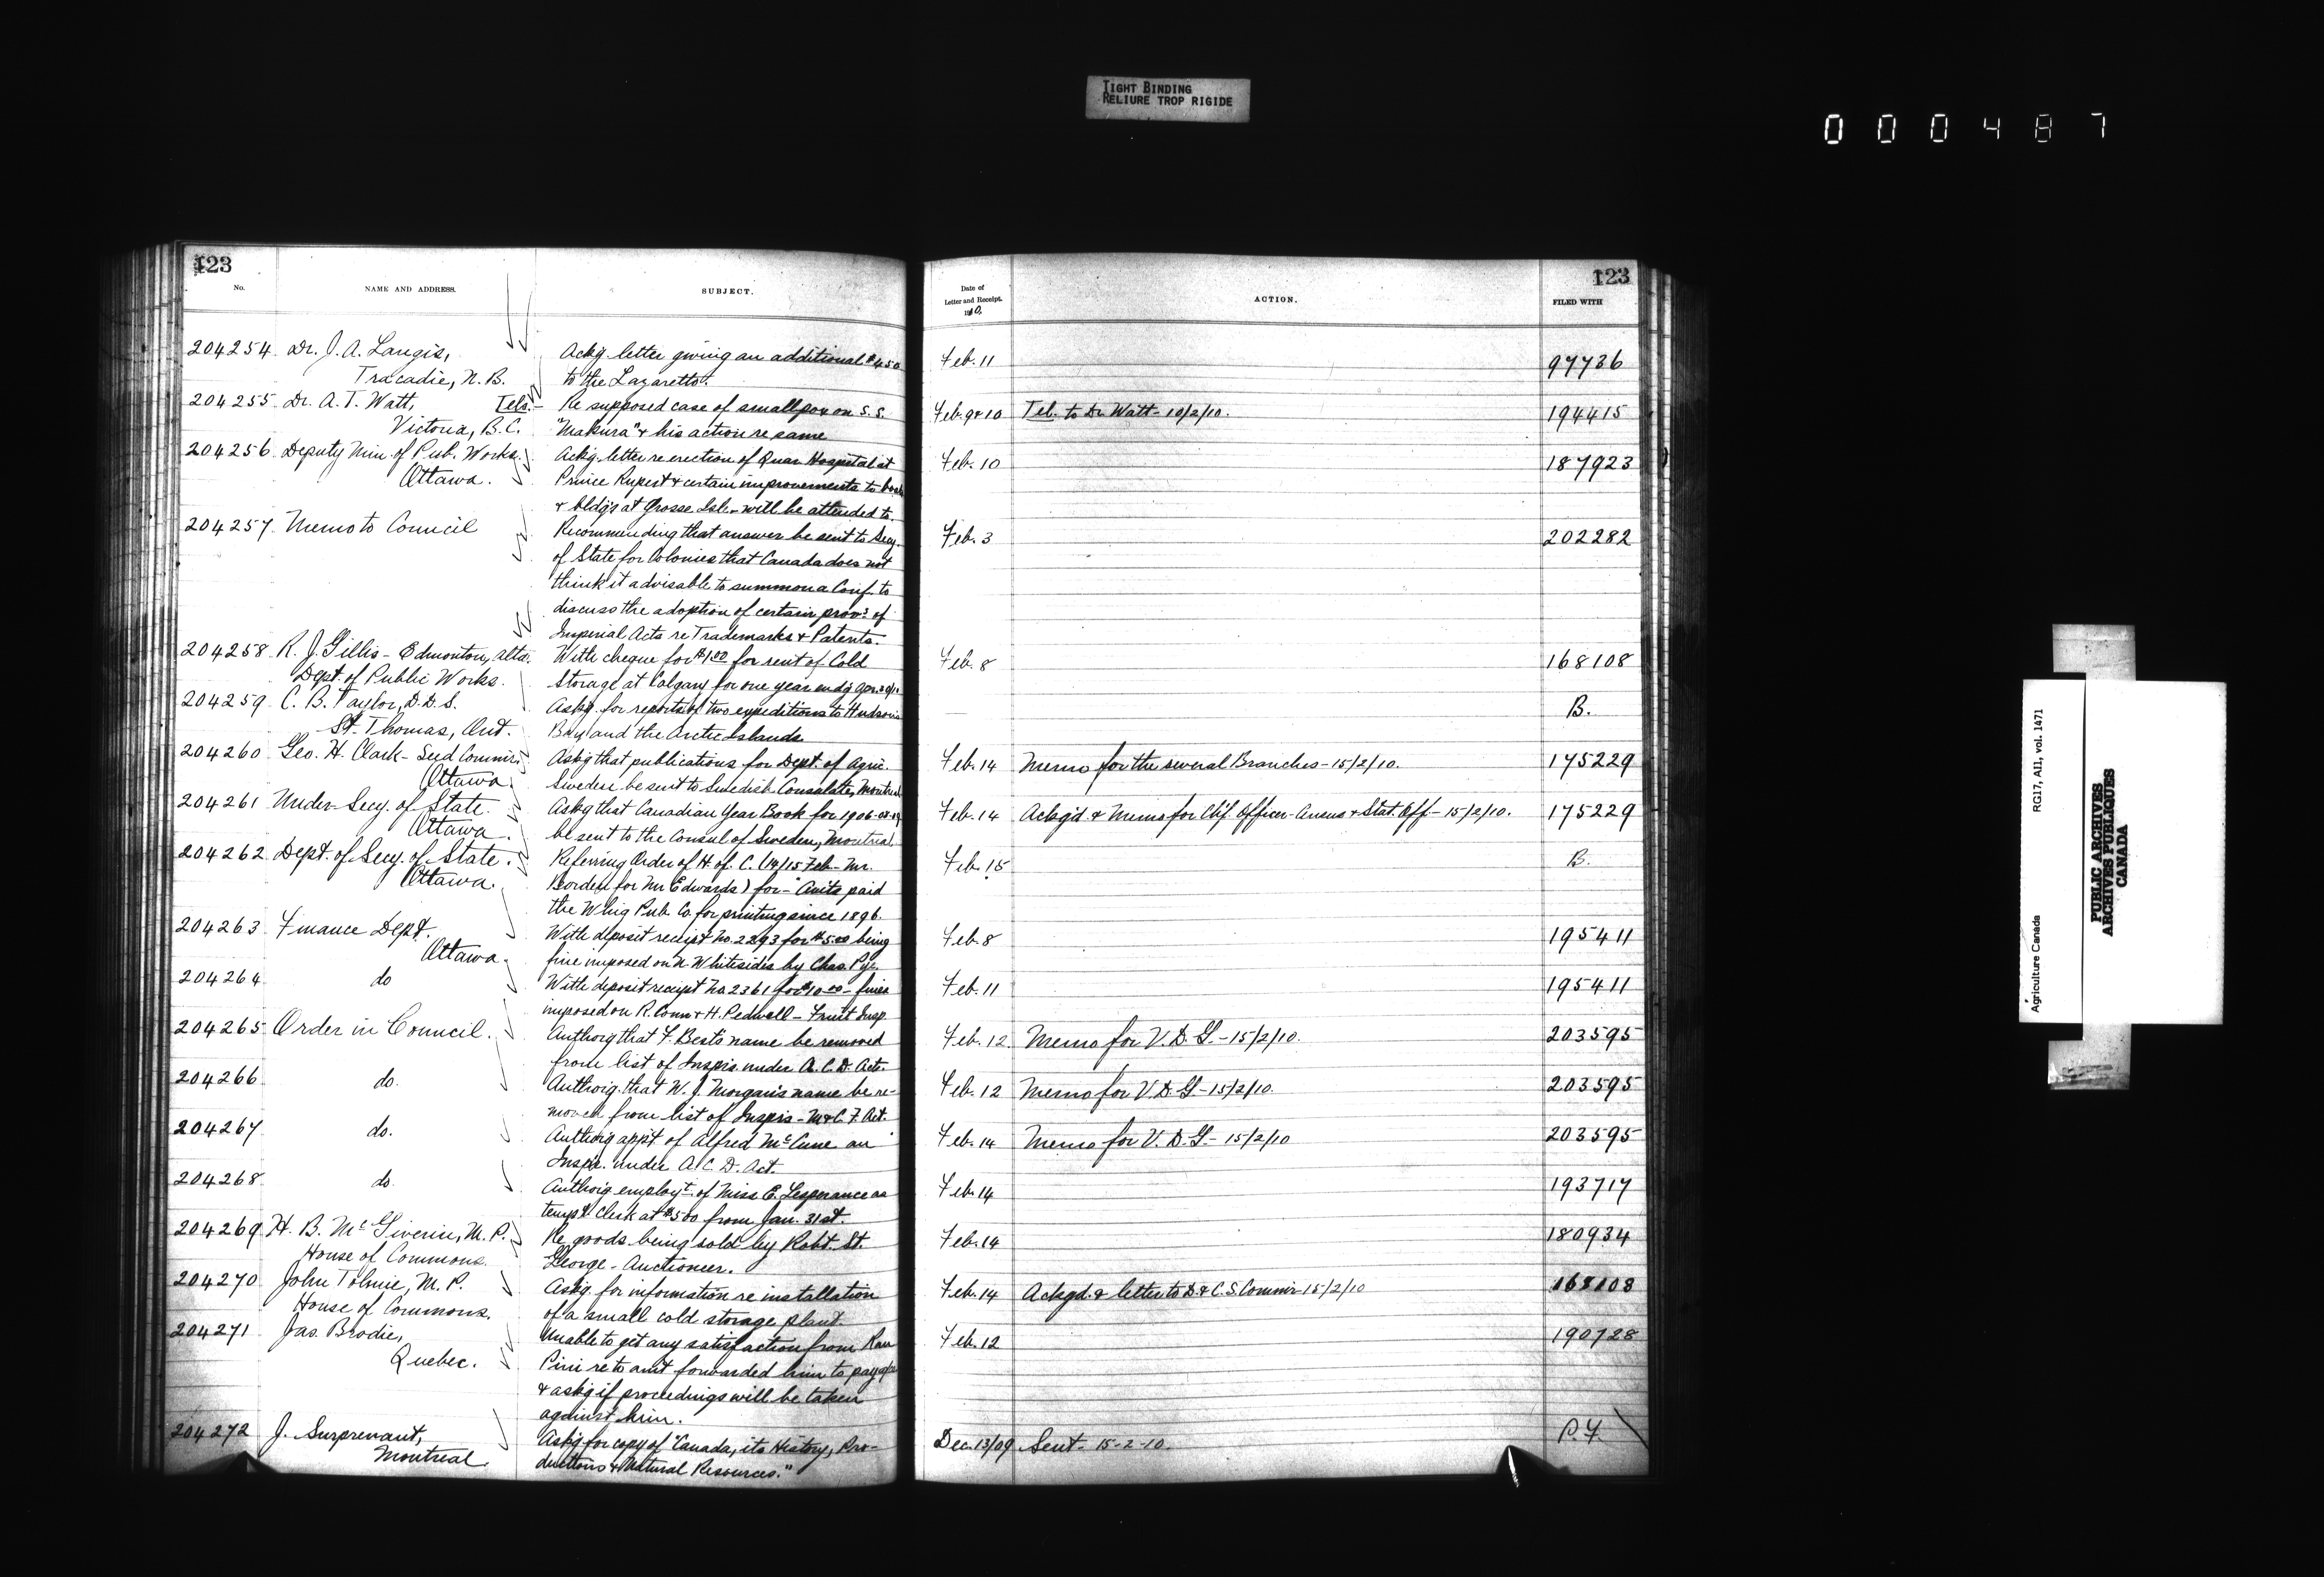 TIGHT BINDING
RELIURE TROP RIGIDE
000487
123
No.
NAME AND ADDRESS.
SUBJECT.
204254 Dr. J. A. Langis, Ackg letter giving an additional $450
Tracadie, N. B. to the Lazaretto.
204255 Dr. A. T. Watt, Tels.- Re supposed case of smallpox on S. S.
Victoria, B.C. "Makura" & his action re same
204256 Deputy Min. of Pub. Works. Ackg. letter re erection of Quar Hospital at
Ottawa. Prince Rupert & certain improvements to
& bldgs at Grosse Isle - will be attended to.
204257 Memo to Council Recommending that answer be sent to Secy.
of State for Colonies that Canada does not
think it advisable to summon a Conf. to
discuss the adoption of certain provs. of
Imperial Acts re Trademarks & Patents.
204258 R. J. Gillis - Edmonton, Alta. With cheque for $1.00 for rent of Cold
Dept. of Public Works. Storage at Calgary for one year endg
204259 C. B. Taylor, D.D.S. Askg. for reports of two expeditions to Hudson's
St. Thomas, Ont. Bay and the Arctic Islands
204260 Geo. H. Clark - Seed Commr. Askg that publications for Dept. of Agric.
Ottawa. Sweden be sent to Swedish Consulate, Montreal
204261 Under-Secy. of State. Askg that Canadian Year Book for 1906-
Ottawa. be sent to the Consul of Sweden, Montreal.
204262 Dept. of Secy. of State. Referring Order of H. of C. (14/15 Feb - Mr.
Ottawa. Borden for Mr Edwards) for - Amts paid
the Whig Pub. Co. for printing since 1896.
204263 Finance Dept. With deposit receipt No. 2293 for $5.00 being
Ottawa. fine imposed on N. Whitesides by Chas. Pye.
204264 do With deposit receipt No 2361 for $10.00 - fines
imposed on R. Conn & H. Pedwell - Fruit Insp.
204265 Order in Council. Authorig that F. Best's name be removed
from list of Insprs. under A. C. D. Act.
204266 do. Authorig. that W. J. Morgan's name be re-
moved from list of Insprs - M & C. F. Act.
204267 do. Authorig appt. of Alfred McCune an
Inspr. under A. C. D. Act.
204268 do. Authorig employt. of Miss E. Lesperance as
tempy. Clerk at $500 from Jan. 31st.
204269 H. B. McGiverin, M. P. Re goods being sold by Robt. St.
House of Commons. George - Auctioneer.
204270 John Tolmie, M. P. Askg. for information re installation
House of Commons. of a small cold storage plant.
204271 Jas. Brodie, Unable to get any satisfaction from
Quebec. re to amt forwarded him to pay
& askg if proceedings will be taken
against him.
204272 J. Surprenant, Askg for copy of "Canada, its History, Pro-
Montreal ductions & Natural Resources."
123
Date of
Letter and Receipt.
1910.
ACTION.
FILED WITH
Feb. 11 97736
Feb. 9 & 10 Tel. to Dr Watt - 10/2/10. 194415
Feb. 10 187923
Feb. 3 202282
Feb. 8 168108
B.
Feb. 14 Memo for the several Branches - 15/2/10. 175229
Feb. 14 Ackg'd. & Memo for Chf. Officer - Census & Stat. Off - 15/2/10. 175229
Feb. 15 B.
Feb. 8 195411
Feb. 11 195411
Feb. 12 Memo for V. D. G. - 15/2/10. 203595
Feb. 12 Memo for V. D. G - 15/2/10. 203595
Feb. 14 Memo for V. D. G - 15/2/10 203595
Feb. 14 193717
Feb. 14 180934
Feb. 14 Ackgd. & letter to D. & C. S. Commr 15/2/10 168108
Feb. 12 190728
Dec. 13/09 Sent - 15-2-10. P.F.
Agriculture Canada
RG17, AII, vol. 1471
PUBLIC ARCHIVES
ARCHIVES PUBLIQUES
CANADA